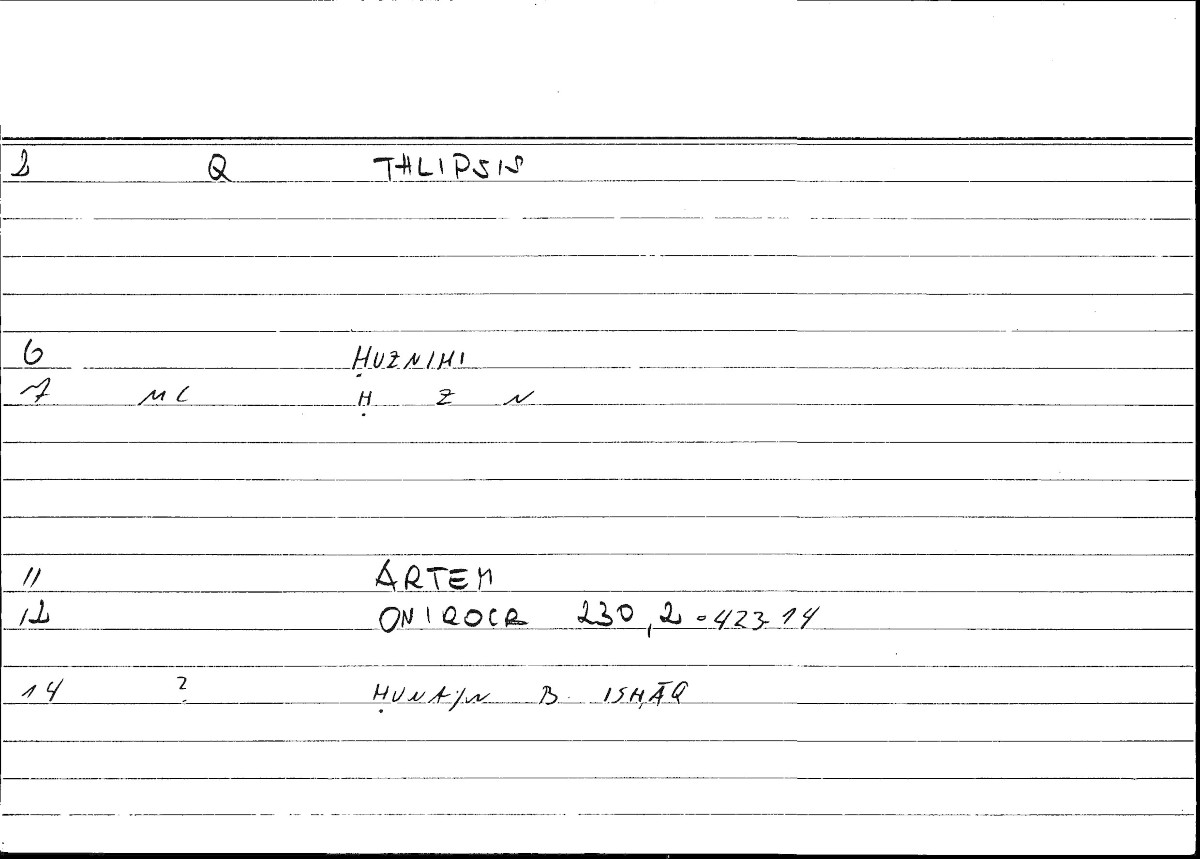 2 Q THLIPSIS
6 ḤUZNIHI
7 MC Ḥ Z N
11 ARTEM
12 ONIROCR 230,2 = 423-14
14 ? ḤUNAJN B. ISḤĀQ